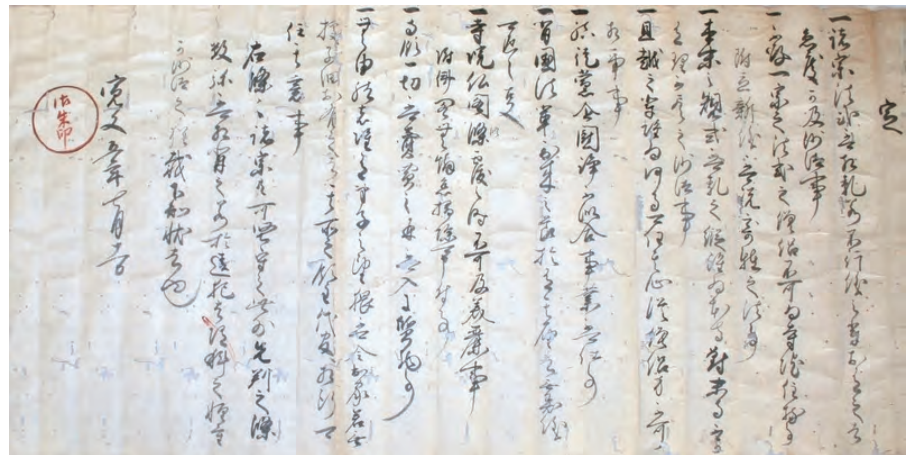 定
一諸宗法式不可相乱若不行儀之輩於有之者
急度可及沙汰事
一不存一宗之法式之僧侶不可為寺院住持事
附立新儀不可説奇怪之法事
一本末之規式不可乱之縦雖為本寺対末寺不可
有理不尽之沙汰事
一旦越之輩雖為何寺可任其心従僧侶方不可
相争事
一結徒党企闘諍不似合事業不可仕事
一背国法輩到来之節於有其届無異儀
可返之事
一寺院仏閣修覆之時不可及美麗事
附仏閣無懈怠掃除可申付事
一寺領一切不可売買之并不可入于質物事
一無由緒者雖有弟子之望猥不可令出家若無
拠子細有之者其所之領主代官相断可
任其意事
右條々諸宗共可堅守之此外先判之條
数弥不可相背之若於違犯者随科之軽重
可沙汰之猶載下知状者也
寛文五年七月十一日
御朱印